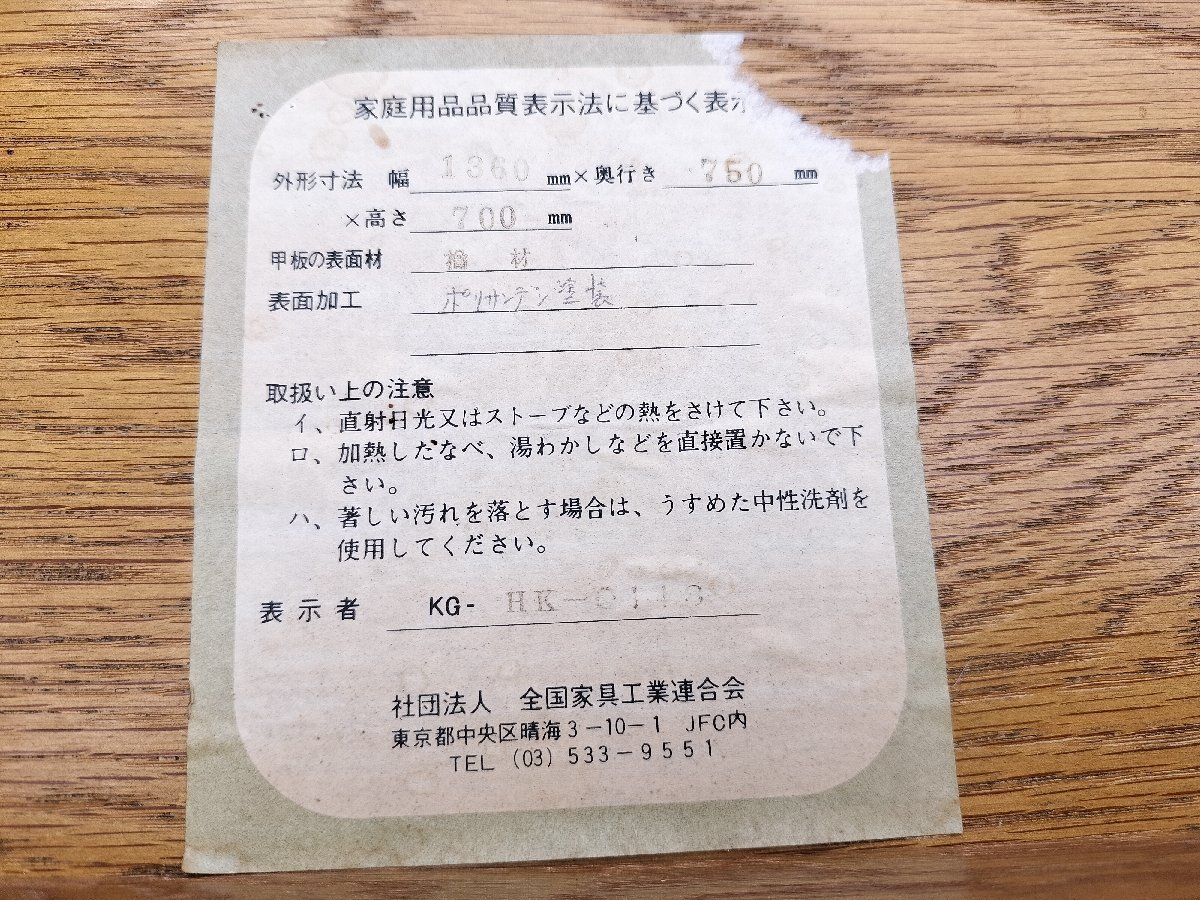 家庭用品品質表示法に基づく表示
外形寸法 幅 1360 mm×奥行き 750 mm
×高さ 700 mm
甲板の表面材 材
表面加工 ポリサンテン塗装
取扱い上の注意
イ、直射日光又はストーブなどの熱をさけて下さい。
ロ、加熱したなべ、湯わかしなどを直接置かないで下
さい。
ハ、著しい汚れを落とす場合は、うすめた中性洗剤を
使用してください。
表示者 KG- HK-0113
社団法人 全国家具工業連合会
東京都中央区晴海3-10-1 JFC内
TEL (03) 533-9551